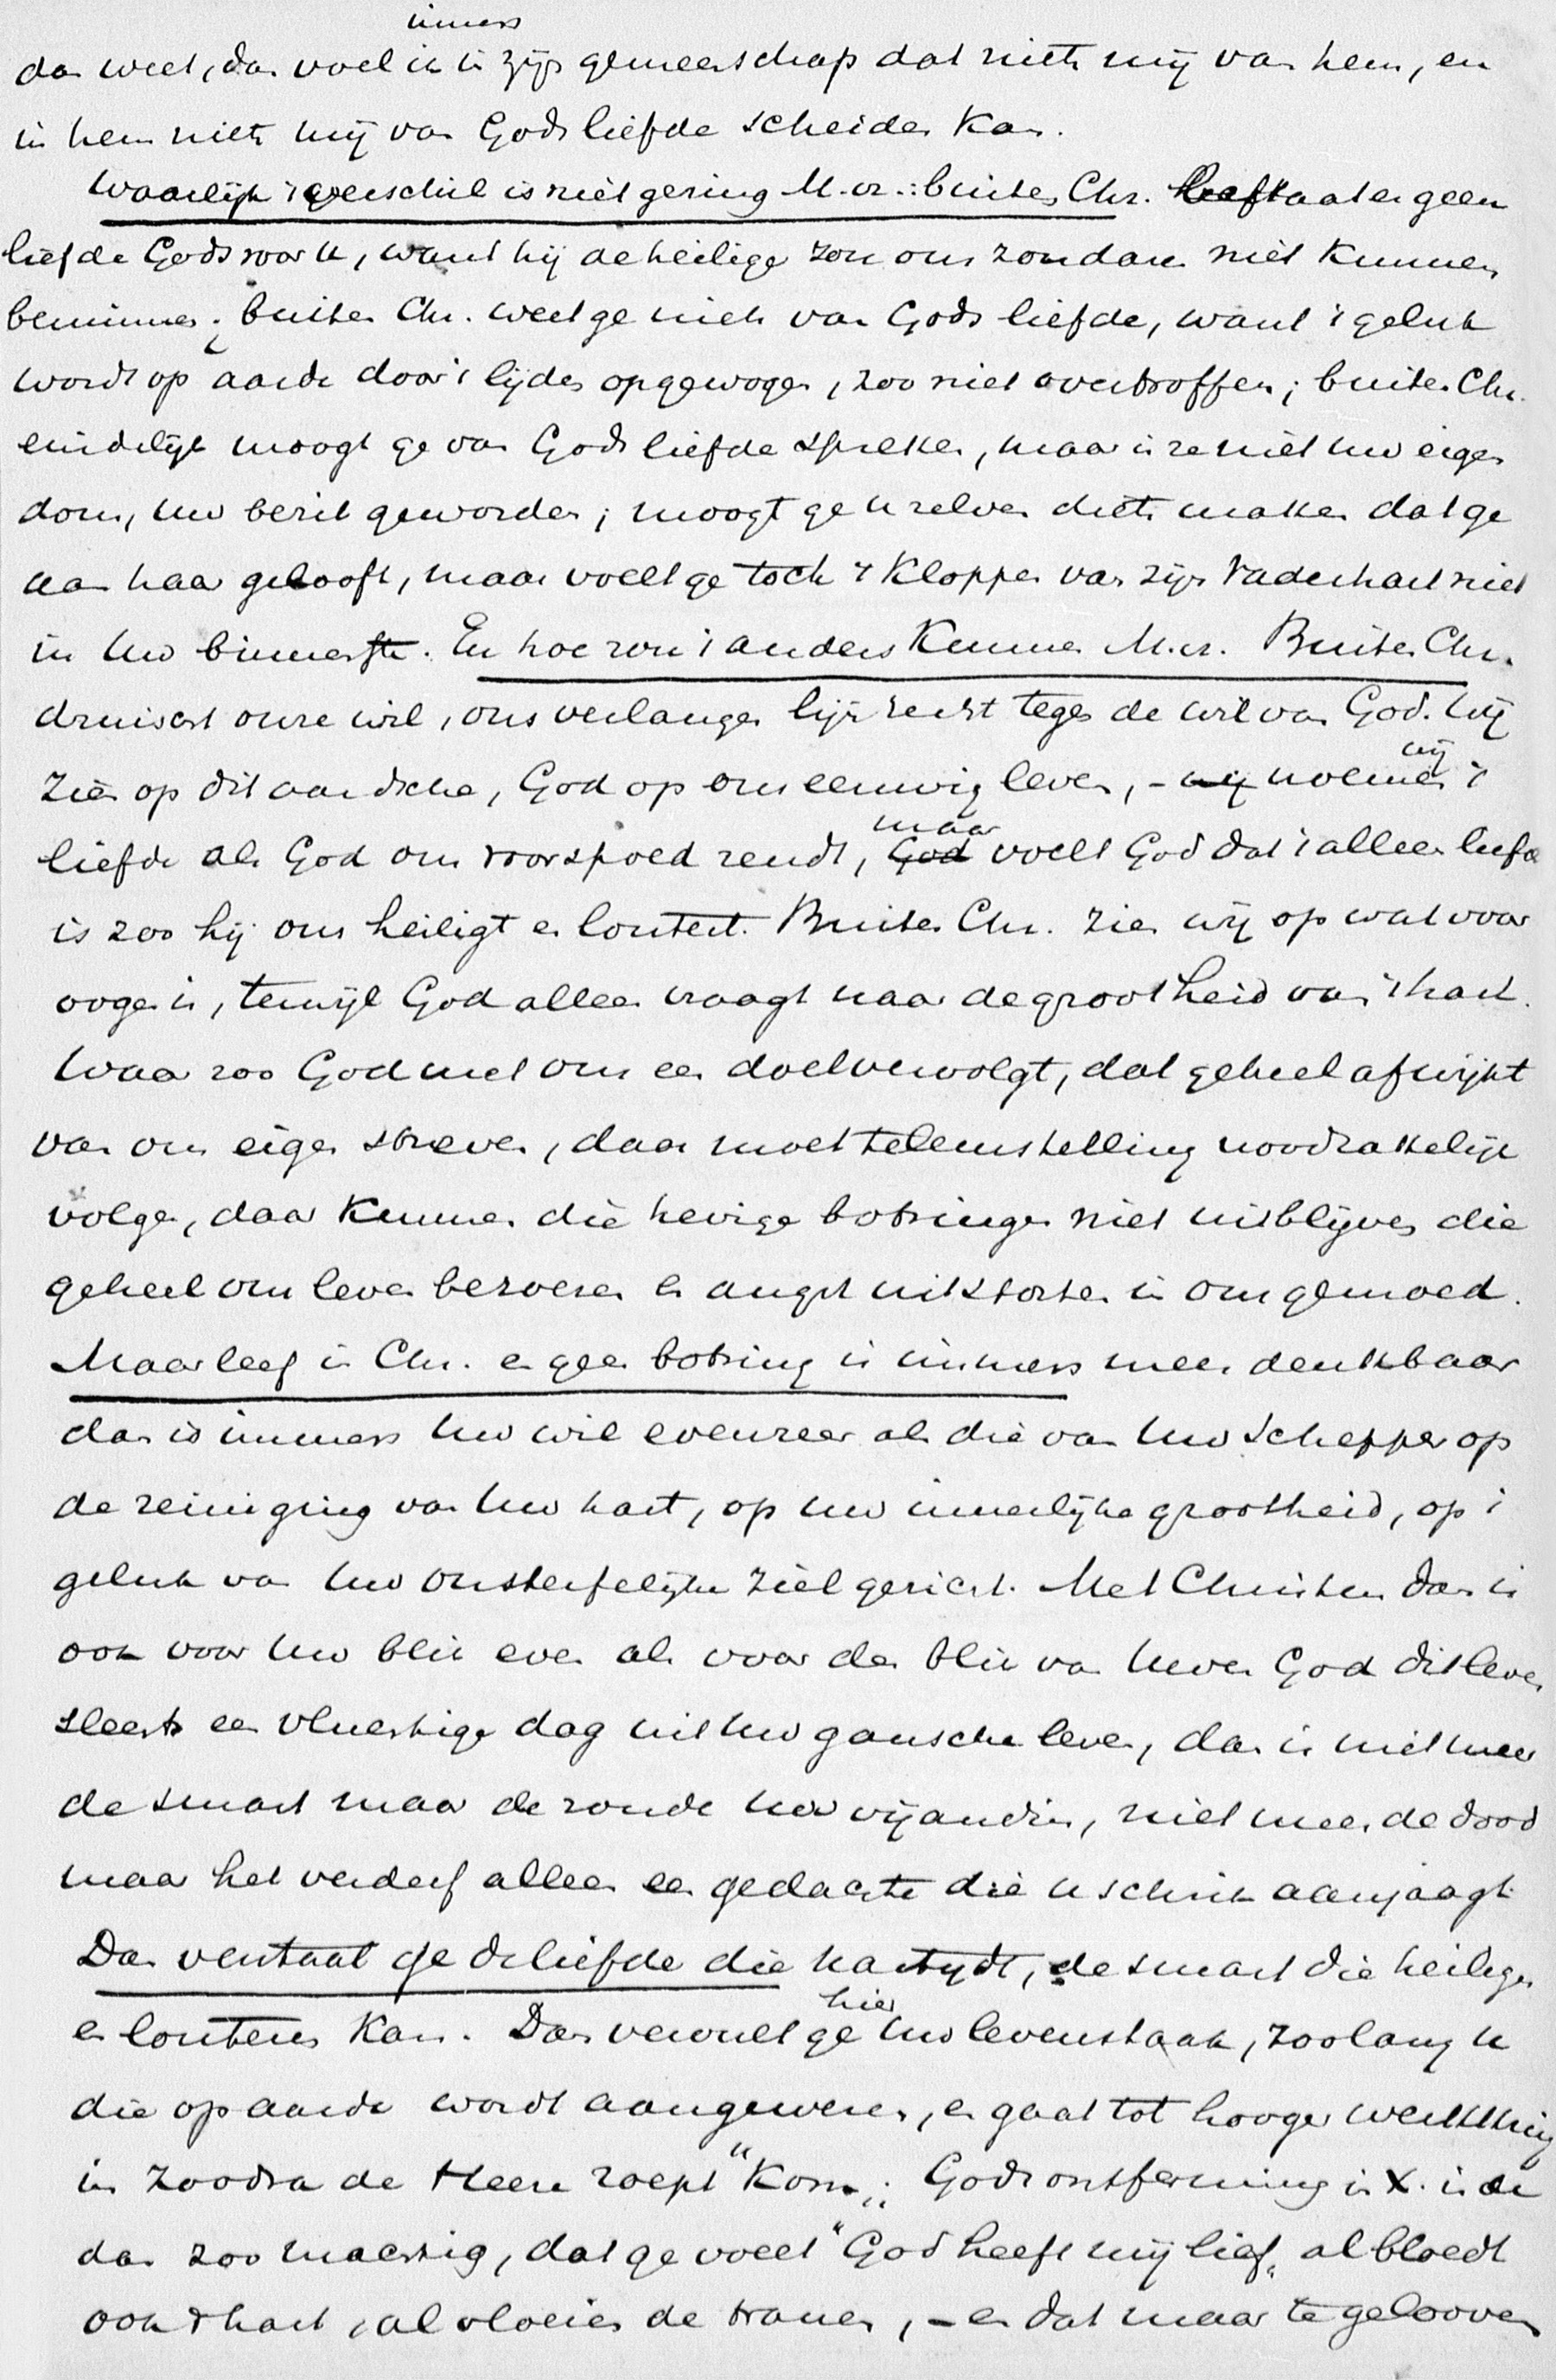 immers
dan weet, dan voel ik in zijn gemeenschap dat niets mij van hem, en
in hem niets mij van Gods liefde scheiden kan.
Waarlijk 't verschil is niet gering M. vr.: buiten Chr. bestaat er geen
liefde Gods voor u, want hij de heilige zou ons zondaren niet kunnen
beminnen; buiten Chr. weet ge niets van Gods liefde, want 't geluk
wordt op aarde door 't lijden opgewogen, zoo niet overtroffen; buiten Chr.
eindelijk moogt ge van Gods liefde spreken, maar is ze niet uw eigen
dom, uw bezit geworden; moogt ge u zelven diets maken dat ge
aan haar gelooft, maar voelt ge toch 't kloppen van zijn Vaderhart niet
in uw binnenste. En hoe zou 't anders kunnen M. vr. Buiten Chr.
druischt onze wil, ons verlangen lijnrecht tegen de wil van God. Wij
zien op dit aardsche, God op ons eeuwig leven, - wij noemen wij 't
liefde als God ons voorspoed zendt, God maar voelt God dat 't alleen liefde
is zoo hij ons heiligt en loutert. Buiten Chr. zien wij op wat voor
oogen is, terwijl God alleen vraagt naar de grootheid van 't hart.
Waar zoo God met ons een doel vervolgt, dat geheel afwijkt
van ons eigen streven, daar moet teleurstelling noodzakelijk
volgen, daar kunnen die hevige botsingen niet uitblijven die
geheel ons leven beroeren en angst uitstorten in ons gemoed.
Maar leef in Chr. en geen botsing is immers meer denkbaar
dan is immers uw wil evenzeer als die van uw Schepper op
de reiniging van uw hart, op uw innerlijke grootheid, op 't
geluk van uw onsterfelijke ziel gericht. Met Christus dan is
ook voor uw blik even als voor den blik van uwen God dit leven
slechts een vluchtige dag uit uw gansche leven, dan is niet meer
de smart maar de zonde uw vijandin, niet meer de dood
maar het verderf alleen een gedachte die u schrik aanjaagt.
Dan verstaat ge de liefde die kastydt, de smart die heiligen
en louteren kan. Dan vervult ge hier uw levenstaak, zoolang u
die op aarde wordt aangewezen, en gaat tot hooger werkkring
in zoodra de Heere roept "Kom„; Gods ontferming in X. is u
dan zoo machtig, dat ge voelt "God heeft mij lief„ al bloedt
ook 't hart, al vloeien de tranen, - en dat maar te gelooven